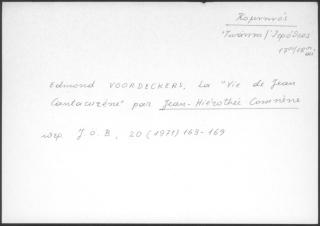 Κομνηνός
Ἰωάννης/Ἱερόθεος
17ος/18ος
Edmond VOORDECKERS, La "Vie de Jean
Cantacuzène" par Jean-Hiérothée Comnène
J.O.B, 20 (1971) 163-169